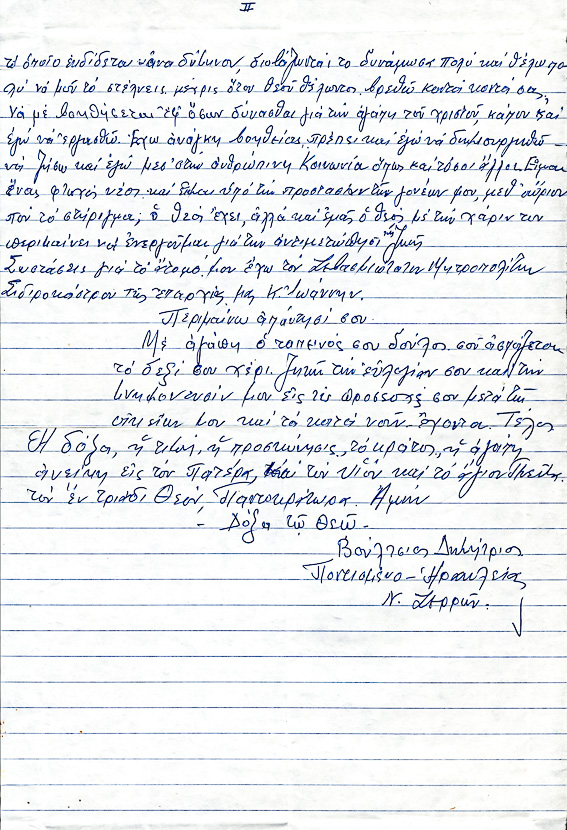 II
τὸ ὁποῖο ἐνδίδεται διαβάζωντάς το δυνάμωσα πολύ καὶ θέλω πο-
λύ νὰ μοῦ τὸ στέλνεις μέχρις ὅτου Θεοῦ θέλοντος βρεθῶ κοντὰ κοντά σας,
νὰ μὲ βοηθήσεται ἐφ' ὅσων δύνασθαι γιὰ τὴν ἀγάπη τοῦ χριστοῦ, κάπου καὶ
ἐγὼ νὰ ἐργασθῶ. Ἔχω ἀνάγκη βοηθείας, πρέπει καὶ ἐγὼ νὰ δημιουργηθῶ
νὰ ζήσω καὶ ἐγὼ μεσ' στὴν ἀνθρώπινη Κοινωνία ὅπως καὶ τόσοι ἄλλοι. Εἶμαι
ἕνας φτωχός νέος καὶ ὑπὸ τὴν προστασίαν τῶν γονέων μου, μεθ' αὔριον
ποῦ τὸ στήριγμα; ὁ Θεός ἔχει, ἀλλὰ καὶ ἐμᾶς ὁ θεός μὲ τὴν χάριν του
περιμαίνει νὰ ἐνεργοῦμαι γιὰ τὴν ἀντιμετώπησι τῆς ζωῆς
Συστάσεις γιὰ τὸ ἄτομό μου ἔχω τὸν Σεβασμιώτατον Μητροπολίτην
Σιδηροκάστρου τῆς ἐπαρχίας μας Κ. Ἰωάννην.
Περιμαίνω ἀπάντησί σου.
Μὲ ἀγάπη ὁ ταπεινός σου δοῦλος σοῦ ἀσπάζεται
τὸ δεξί σου χέρι. Ζητῆ τὴν εὐλογίαν σου καὶ τὴν
μνημόνευσίν μου εἰς τὰς προσευχάς σου μετὰ τῆς
οἰκείων μου καὶ τὰ κατὰ νοῦν ἔχοντα. Τέλος
Ἡ δόξα, ἡ τιμή, ἡ προσκύνησις, τὸ κράτος, ἡ ἀγάπη
ἀνείκει εἰς τὸν Πατέρα, τὸν Υἱὸν καὶ τὸ ἅγιον Πνεῦμα
τὸν ἐν τριάδι Θεόν, Παντοκράτωρα. Ἀμήν
- Δόξα τῷ Θεῷ -
Βούλτσιος Δημήτριος
Ποντισμένο - Ἡρακλείας
Ν. Σερρῶν.